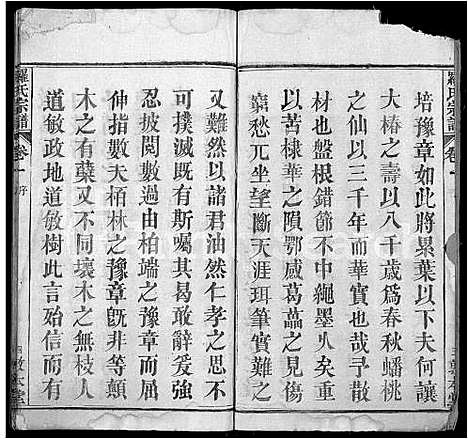 羅氏宗譜 卷一
培豫章如此將累葉以下夫何讓
大椿之壽以八千歲爲春秋蟠桃
之仙以三千年而華實也哉予散
材也盤根錯節不中繩墨人矣重
以苦棣華之隕鄂感葛藟之易傷
窮愁兀坐望斷天涯珥筆難之
又難然以諸君油然仁孝之思何
可撲滅既有斯囑其敢辭縱不
忍披閱數天柏端之豫章而
伸指數天栢林之豫章旣非等顛
木之有蘖又不同壞木之無枝人
道敏政地道敏樹此言猶信
羅氏宗譜 卷一 序
敦本堂